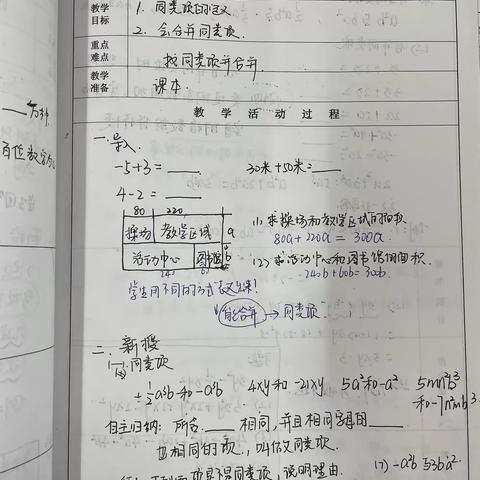 教学目标
1. 同类项的定义
2. 会合并同类项.
重点难点
找同类项并合并.
教学准备
课本.
教学活动过程
一. 导入:
-5+3=____ 30米+50米=____
4-2=____
80 220
操场 教学区域 a
活动中心 图书馆 b
240 60
(1) 求操场和教学区域的面积
80a+220a=300a
(2) 求活动中心和图书馆的面积.
240b+60b=300b.
学生用不同的方式表达出来!
能合并 → 同类项
二. 新授
同类项
4xy和-21xy 5a²和-a²
自主归纳: 所含____相同, 并且相同字母的____
也相同的项, 叫做同类项.
是不是同类项, 说明理由.